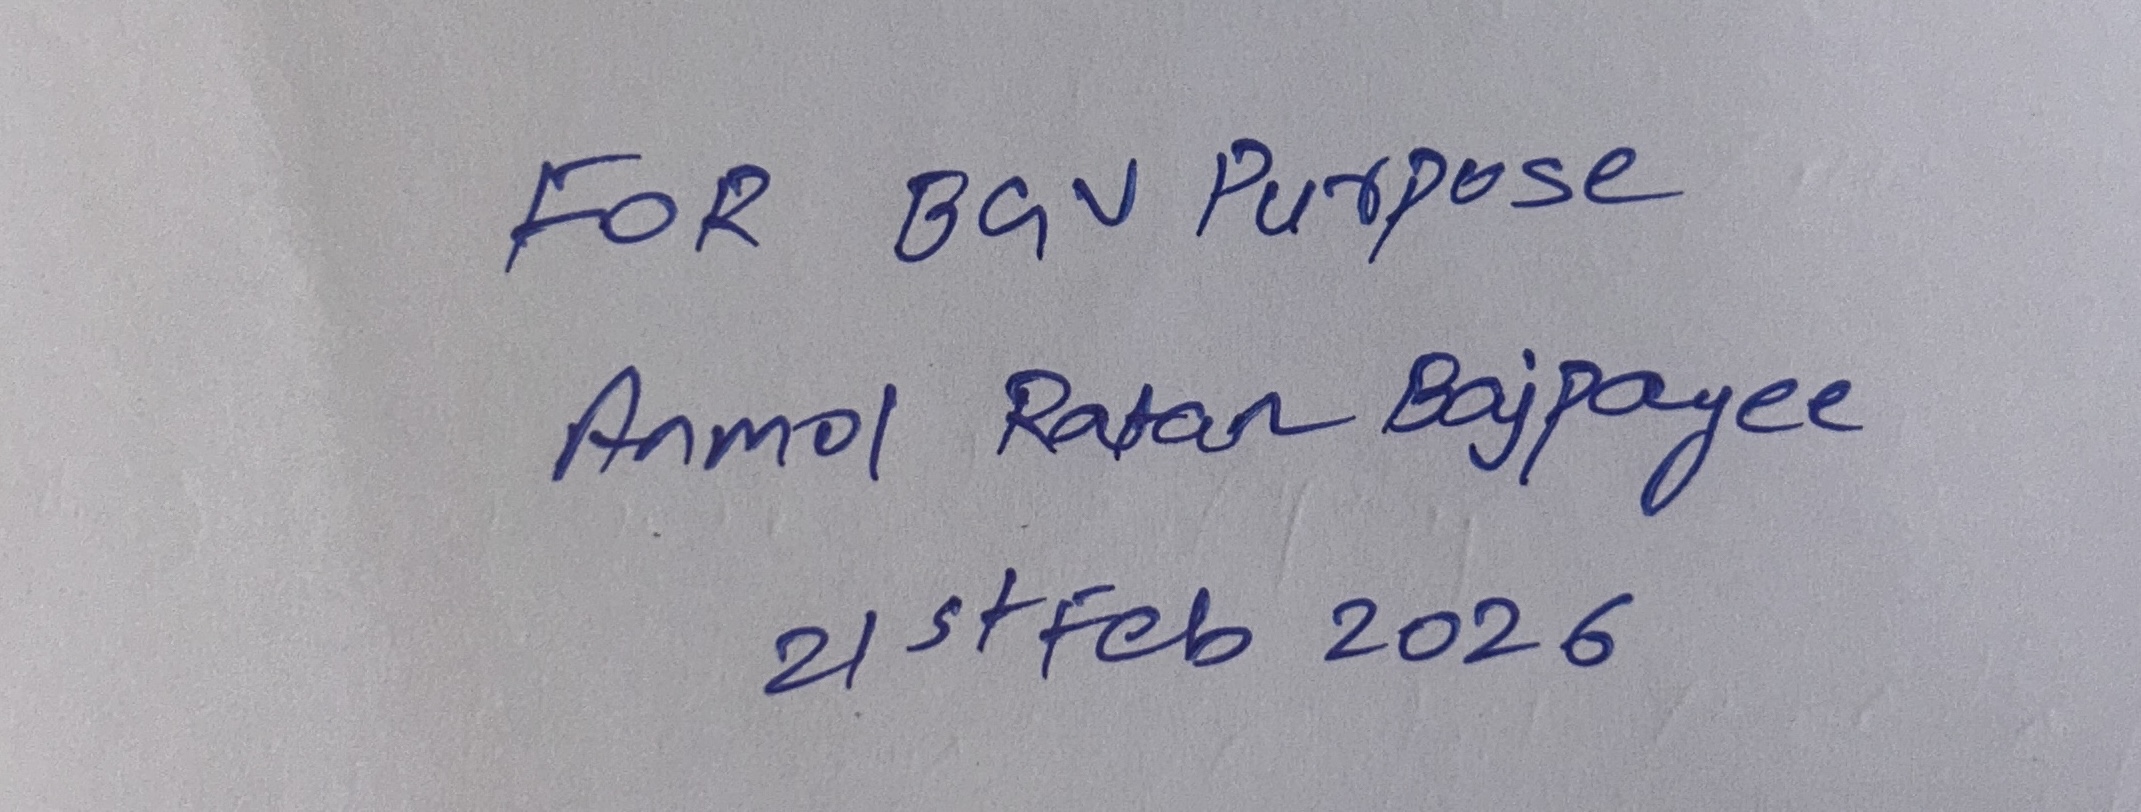 FOR BGV Purpose
Anmol Ratan Bajpayee
21st Feb 2026